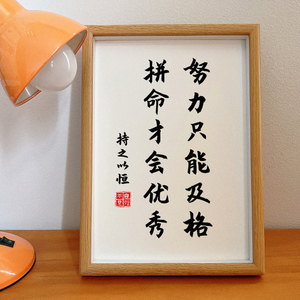 努力只能及格
拼命才会优秀
持之以恒